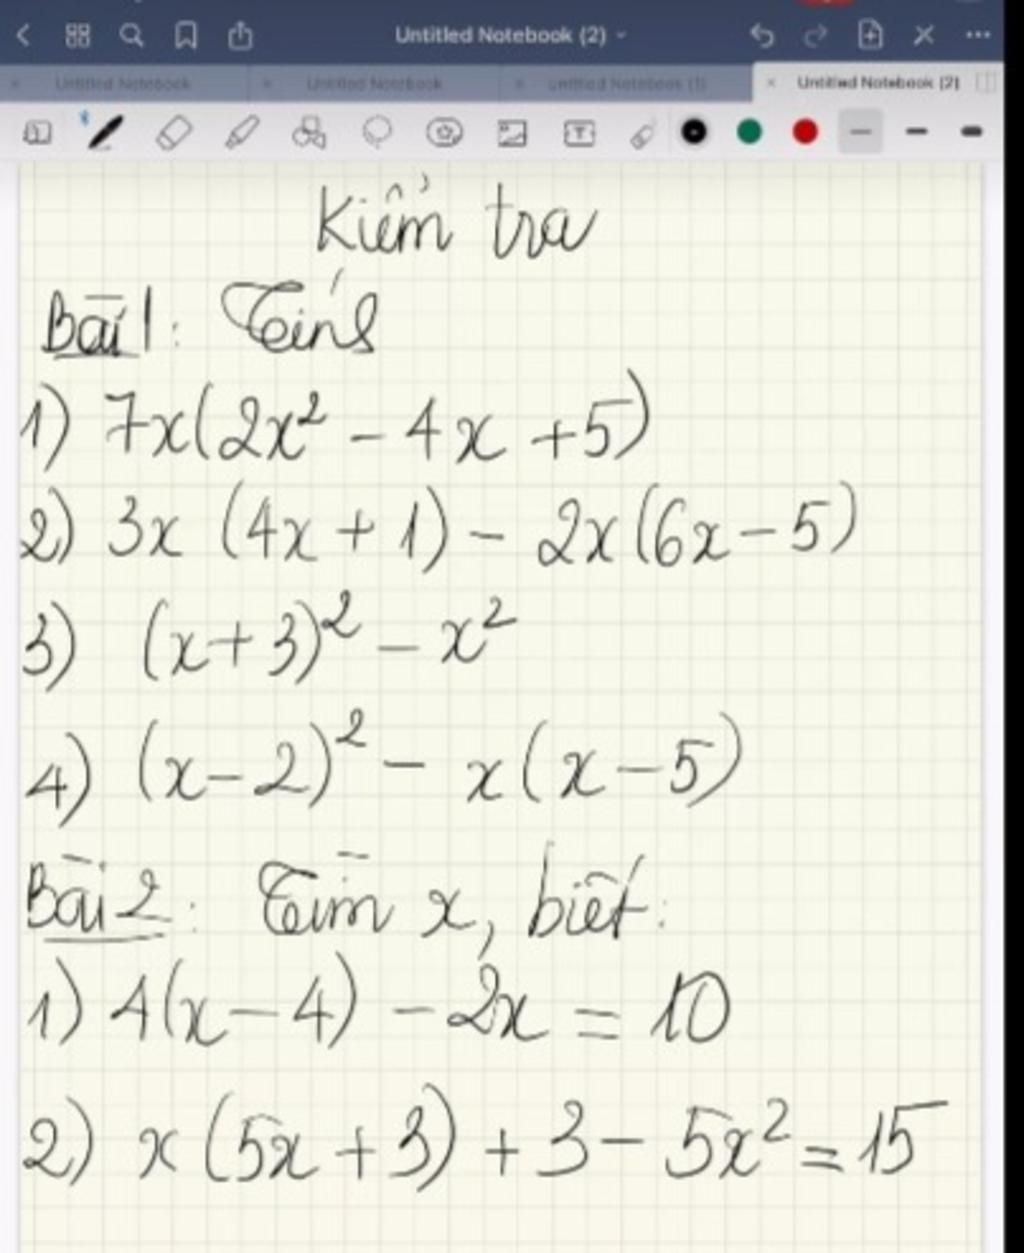 Untitled Notebook (2)
Untitled Notebook
Untitled Notebook
Untitled Notebook (1)
Untitled Notebook (2)
Kiểm tra
Bài 1: Tính
1) 7x(2x² - 4x + 5)
2) 3x (4x + 1) - 2x(6x - 5)
3) (x + 3)² - x²
4) (x - 2)² - x(x - 5)
Bài 2: Tìm x, biết:
1) 4(x - 4) - 2x = 10
2) x(5x + 3) + 3 - 5x² = 15